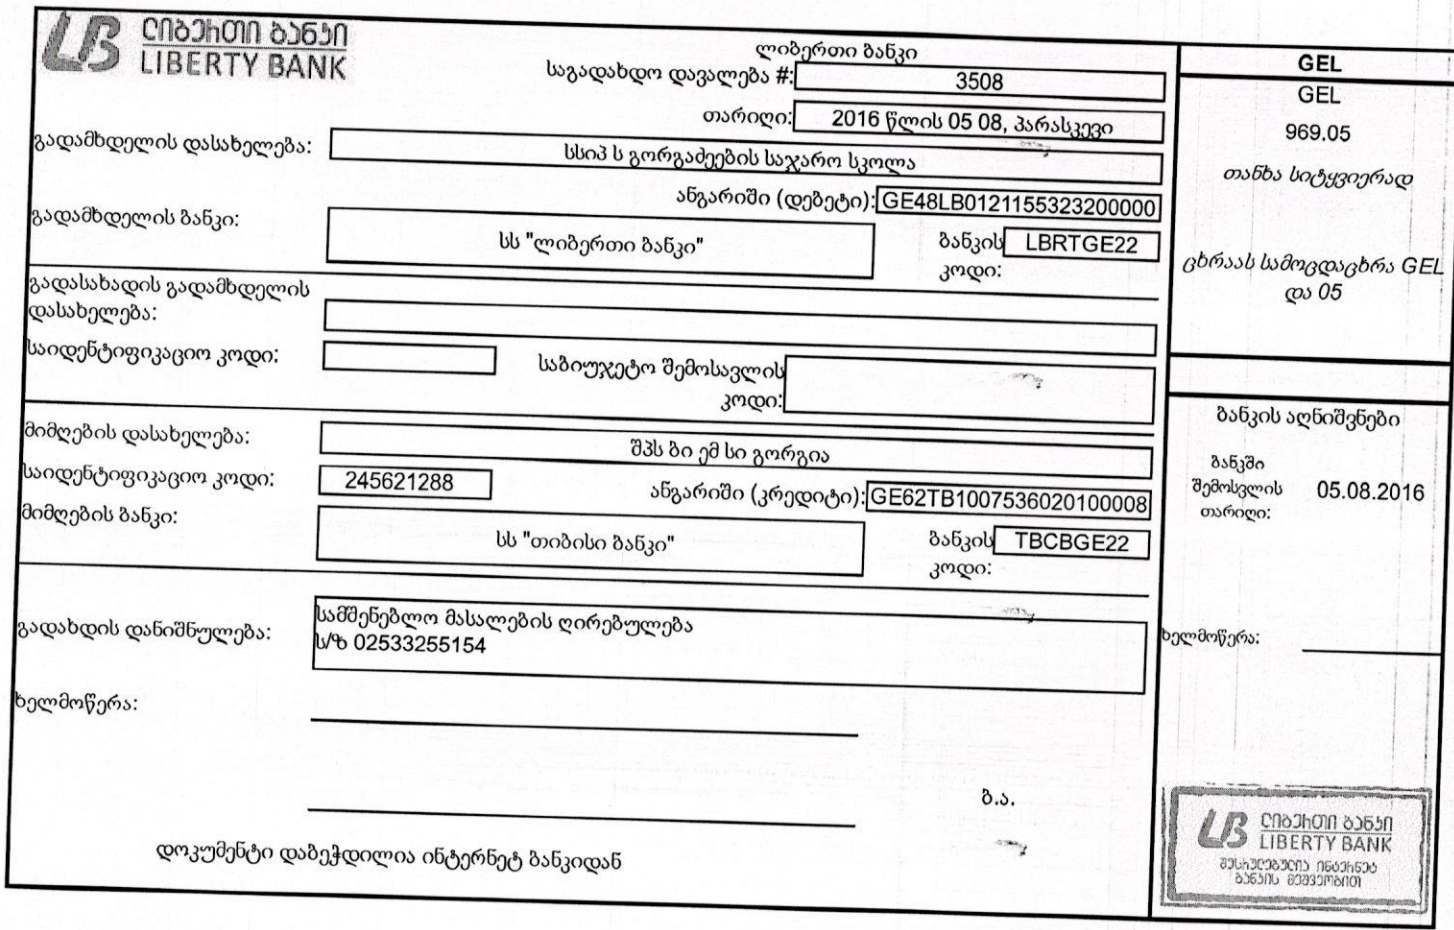 ლიბერთი ბანკი
LIBERTY BANK
ლიბერთი ბანკი
საგადახდო დავალება #: 3508
თარიღი: 2016 წლის 05 08, პარასკევი
გადამხდელის დასახელება: სსიპ ს გორგაძეების საჯარო სკოლა
ანგარიში (დებეტი): GE48LB0121155323200000
გადამხდელის ბანკი: სს "ლიბერთი ბანკი" ბანკის კოდი: LBRTGE22
გადასახადის გადამხდელის
დასახელება:
საიდენტიფიკაციო კოდი: საბიუჯეტო შემოსავლის
კოდი:
მიმღების დასახელება: შპს ბი ემ სი გორგია
საიდენტიფიკაციო კოდი: 245621288 ანგარიში (კრედიტი): GE62TB1007536020100008
მიმღების ბანკი: სს "თიბისი ბანკი" ბანკის კოდი: TBCBGE22
გადახდის დანიშნულება: სამშენებლო მასალების ღირებულება
ს/ზ 02533255154
ხელმოწერა:
ბ.ა.
დოკუმენტი დაბეჭდილია ინტერნეტ ბანკიდან
GEL
GEL
969.05
თანხა სიტყვიერად
ცხრაას სამოცდაცხრა GEL
და 05
ბანკის აღნიშვნები
ბანკში
შემოსვლის 05.08.2016
თარიღი:
ხელმოწერა:
LB ლიბერთი ბანკი
LIBERTY BANK
შესრულებულია ინტერნეტ
ბანკის მეშვეობით